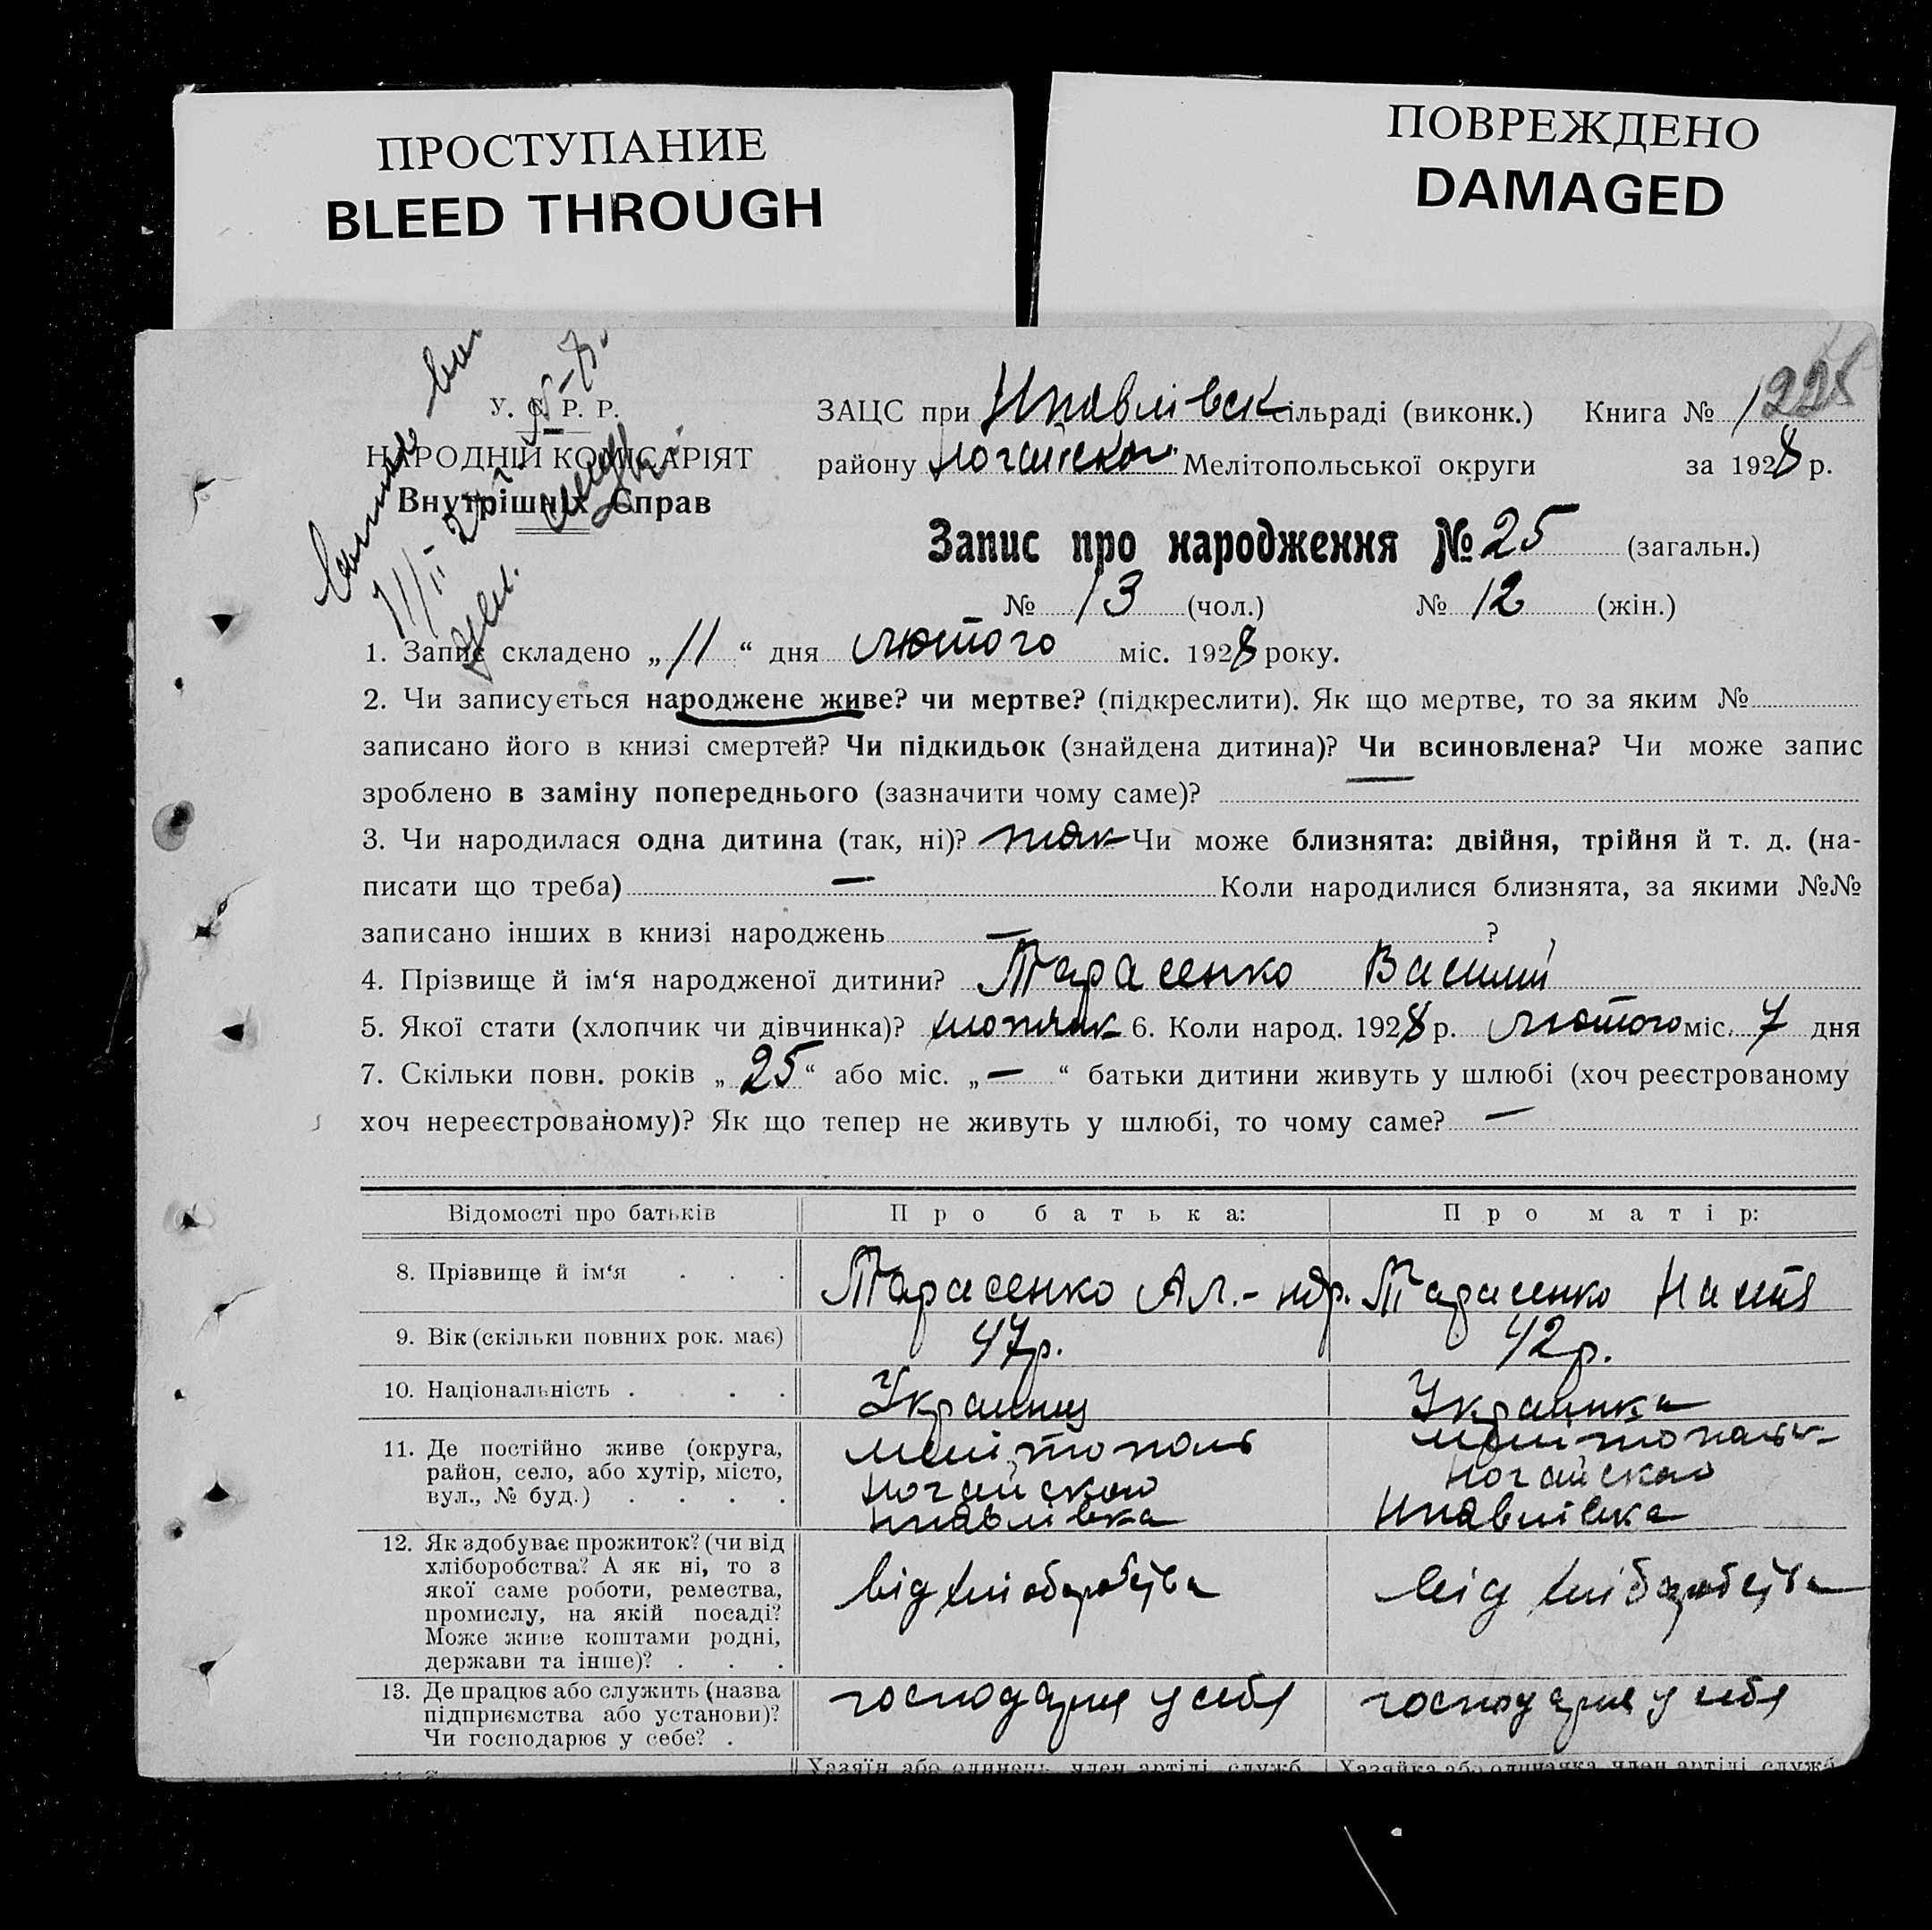 ПРОСТУПАНИЕ
BLEED THROUGH
ПОВРЕЖДЕНО
DAMAGED
У. С. Р. Р.
НАРОДНІЙ КОМІСАРІЯТ
Внутрішніх Справ
ЗАЦС при Нпавлівск сільраді (виконк.) Книга № 1
району Ногайского Мелітопольської округи за 1928 р.
Запис про народження № 25 (загальн.)
№ 13 (чол.) № 12 (жін.)
1. Запис складено „11“ дня лютого міс. 1928 року.
2. Чи записується народжене живе? чи мертве? (підкреслити). Як що мертве, то за яким №
записано його в книзі смертей? Чи підкидьок (знайдена дитина)? Чи всиновлена? Чи може запис
зроблено в заміну попереднього (зазначити чому саме)?
3. Чи народилася одна дитина (так, ні)? так Чи може близнята: двійня, трійня й т. д. (на-
писати що треба) — Коли народилися близнята, за якими №№
записано інших в книзі народжень — ?
4. Прізвище й ім‘я народженої дитини? Тарасенко Василий
5. Якої стати (хлопчик чи дівчинка)? хлопчик 6. Коли народ. 1928 р. лютого міс. 7 дня
7. Скільки повн. років „25“ або міс. „—“ батьки дитини живуть у шлюбі (хоч реєстрованому
хоч нереєстрованому)? Як що тепер не живуть у шлюбі, то чому саме? —
Відомості про батьків Про батька: Про матір:
8. Прізвище й ім‘я . . . Тарасенко Тарасенко Настя
9. Вік (скільки повних рок. має) 47р. 42р.
10. Національність . . . Украинец Украинка
11. Де постійно живе (округа,
район, село, або хутір, місто,
вул., № буд.) . . . .
Мелітополь
Ногайского
Нпавлівка
Мелітопольск
Ногайского
Нпавлівка
12. Як здобуває прожиток? (чи від
хліборобства? А як ні, то з
якої саме роботи, ремества,
промислу, на якій посаді?
Може живе коштами родні,
держави та інше)? . . .
від хліборобства від хліборобства
13. Де працює або служить (назва
підприємства або установи)?
Чи господарює у себе? .
господарює у себя господарює у себя
Хазяїн або одинець, член артілі, служб. Хазяйка або одиначка, член артілі, служб